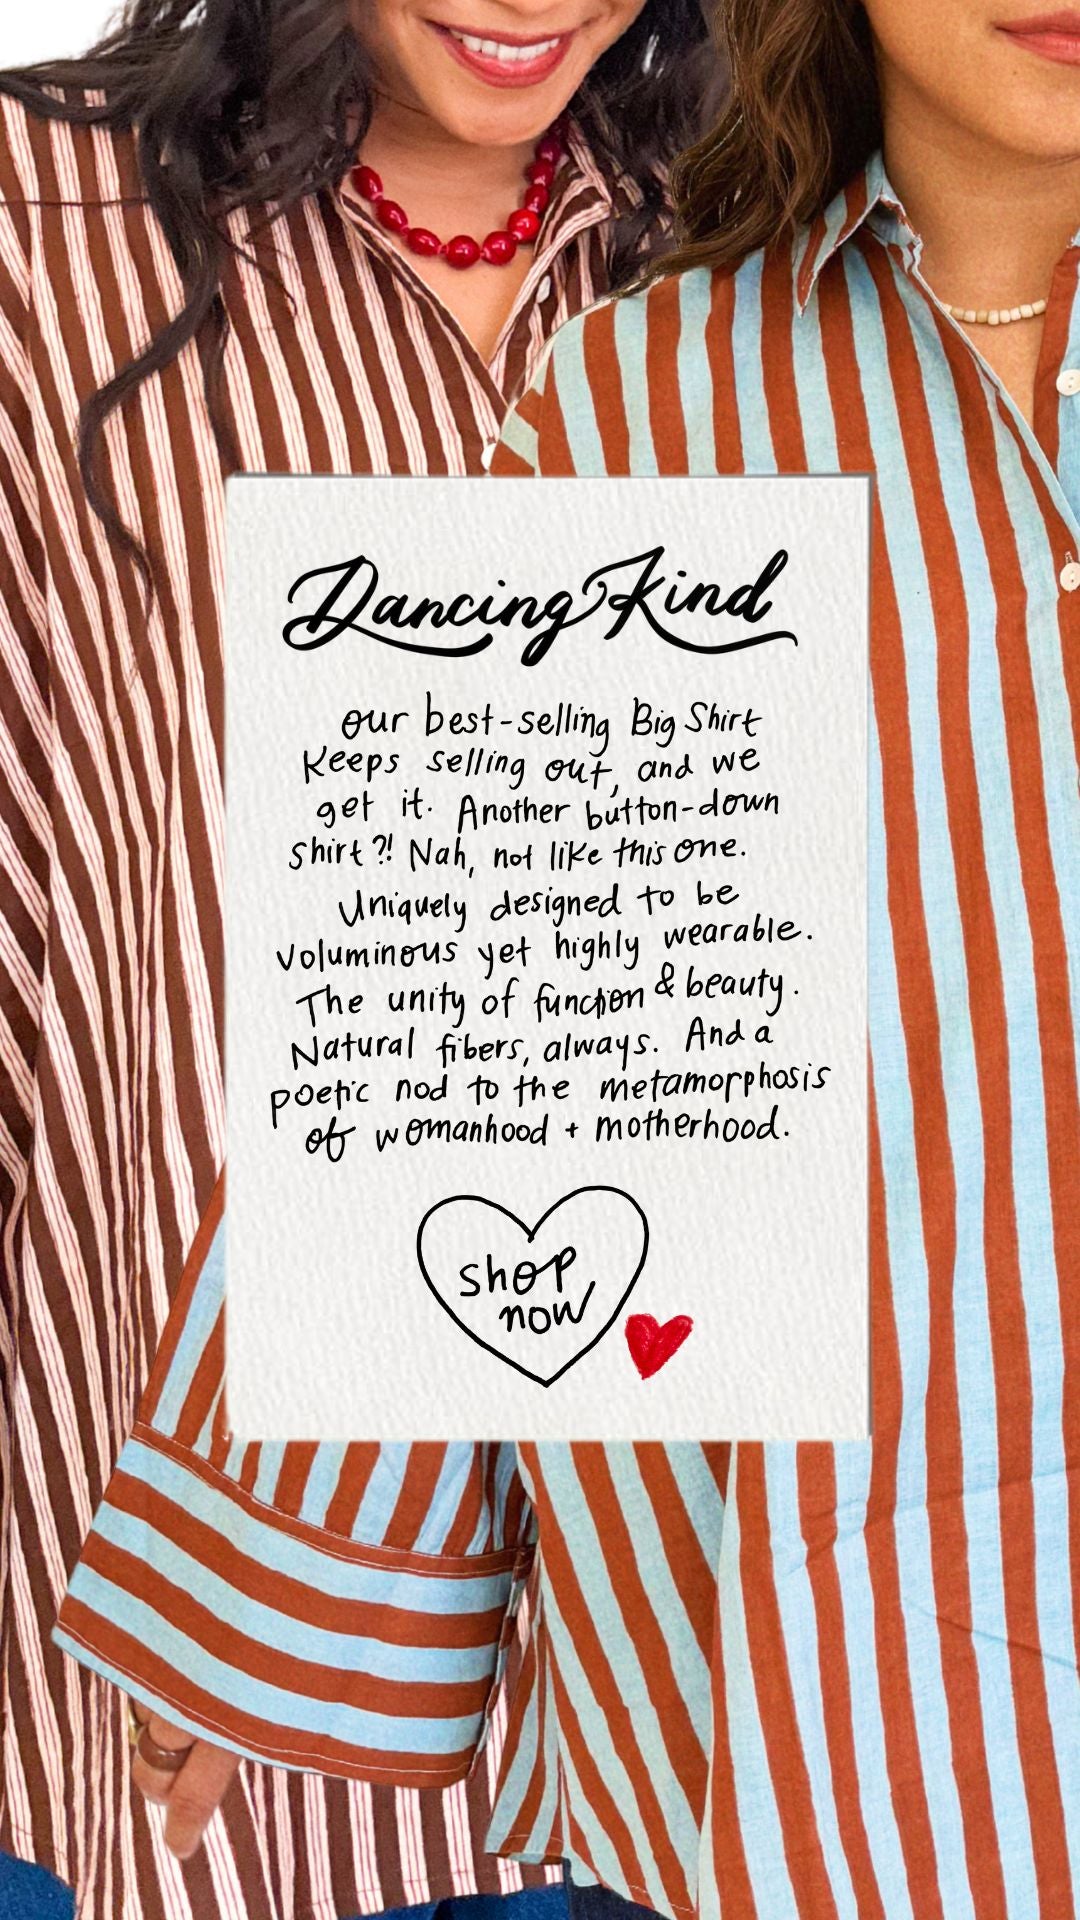 Dancing Kind
our best-selling Big Shirt
Keeps selling out, and we
get it. Another button-down
shirt?! Nah, not like this one.
Uniquely designed to be
voluminous yet highly wearable.
The unity of function & beauty.
Natural fibers, always. And a
poetic nod to the metamorphosis
of womanhood + motherhood.
shop
now